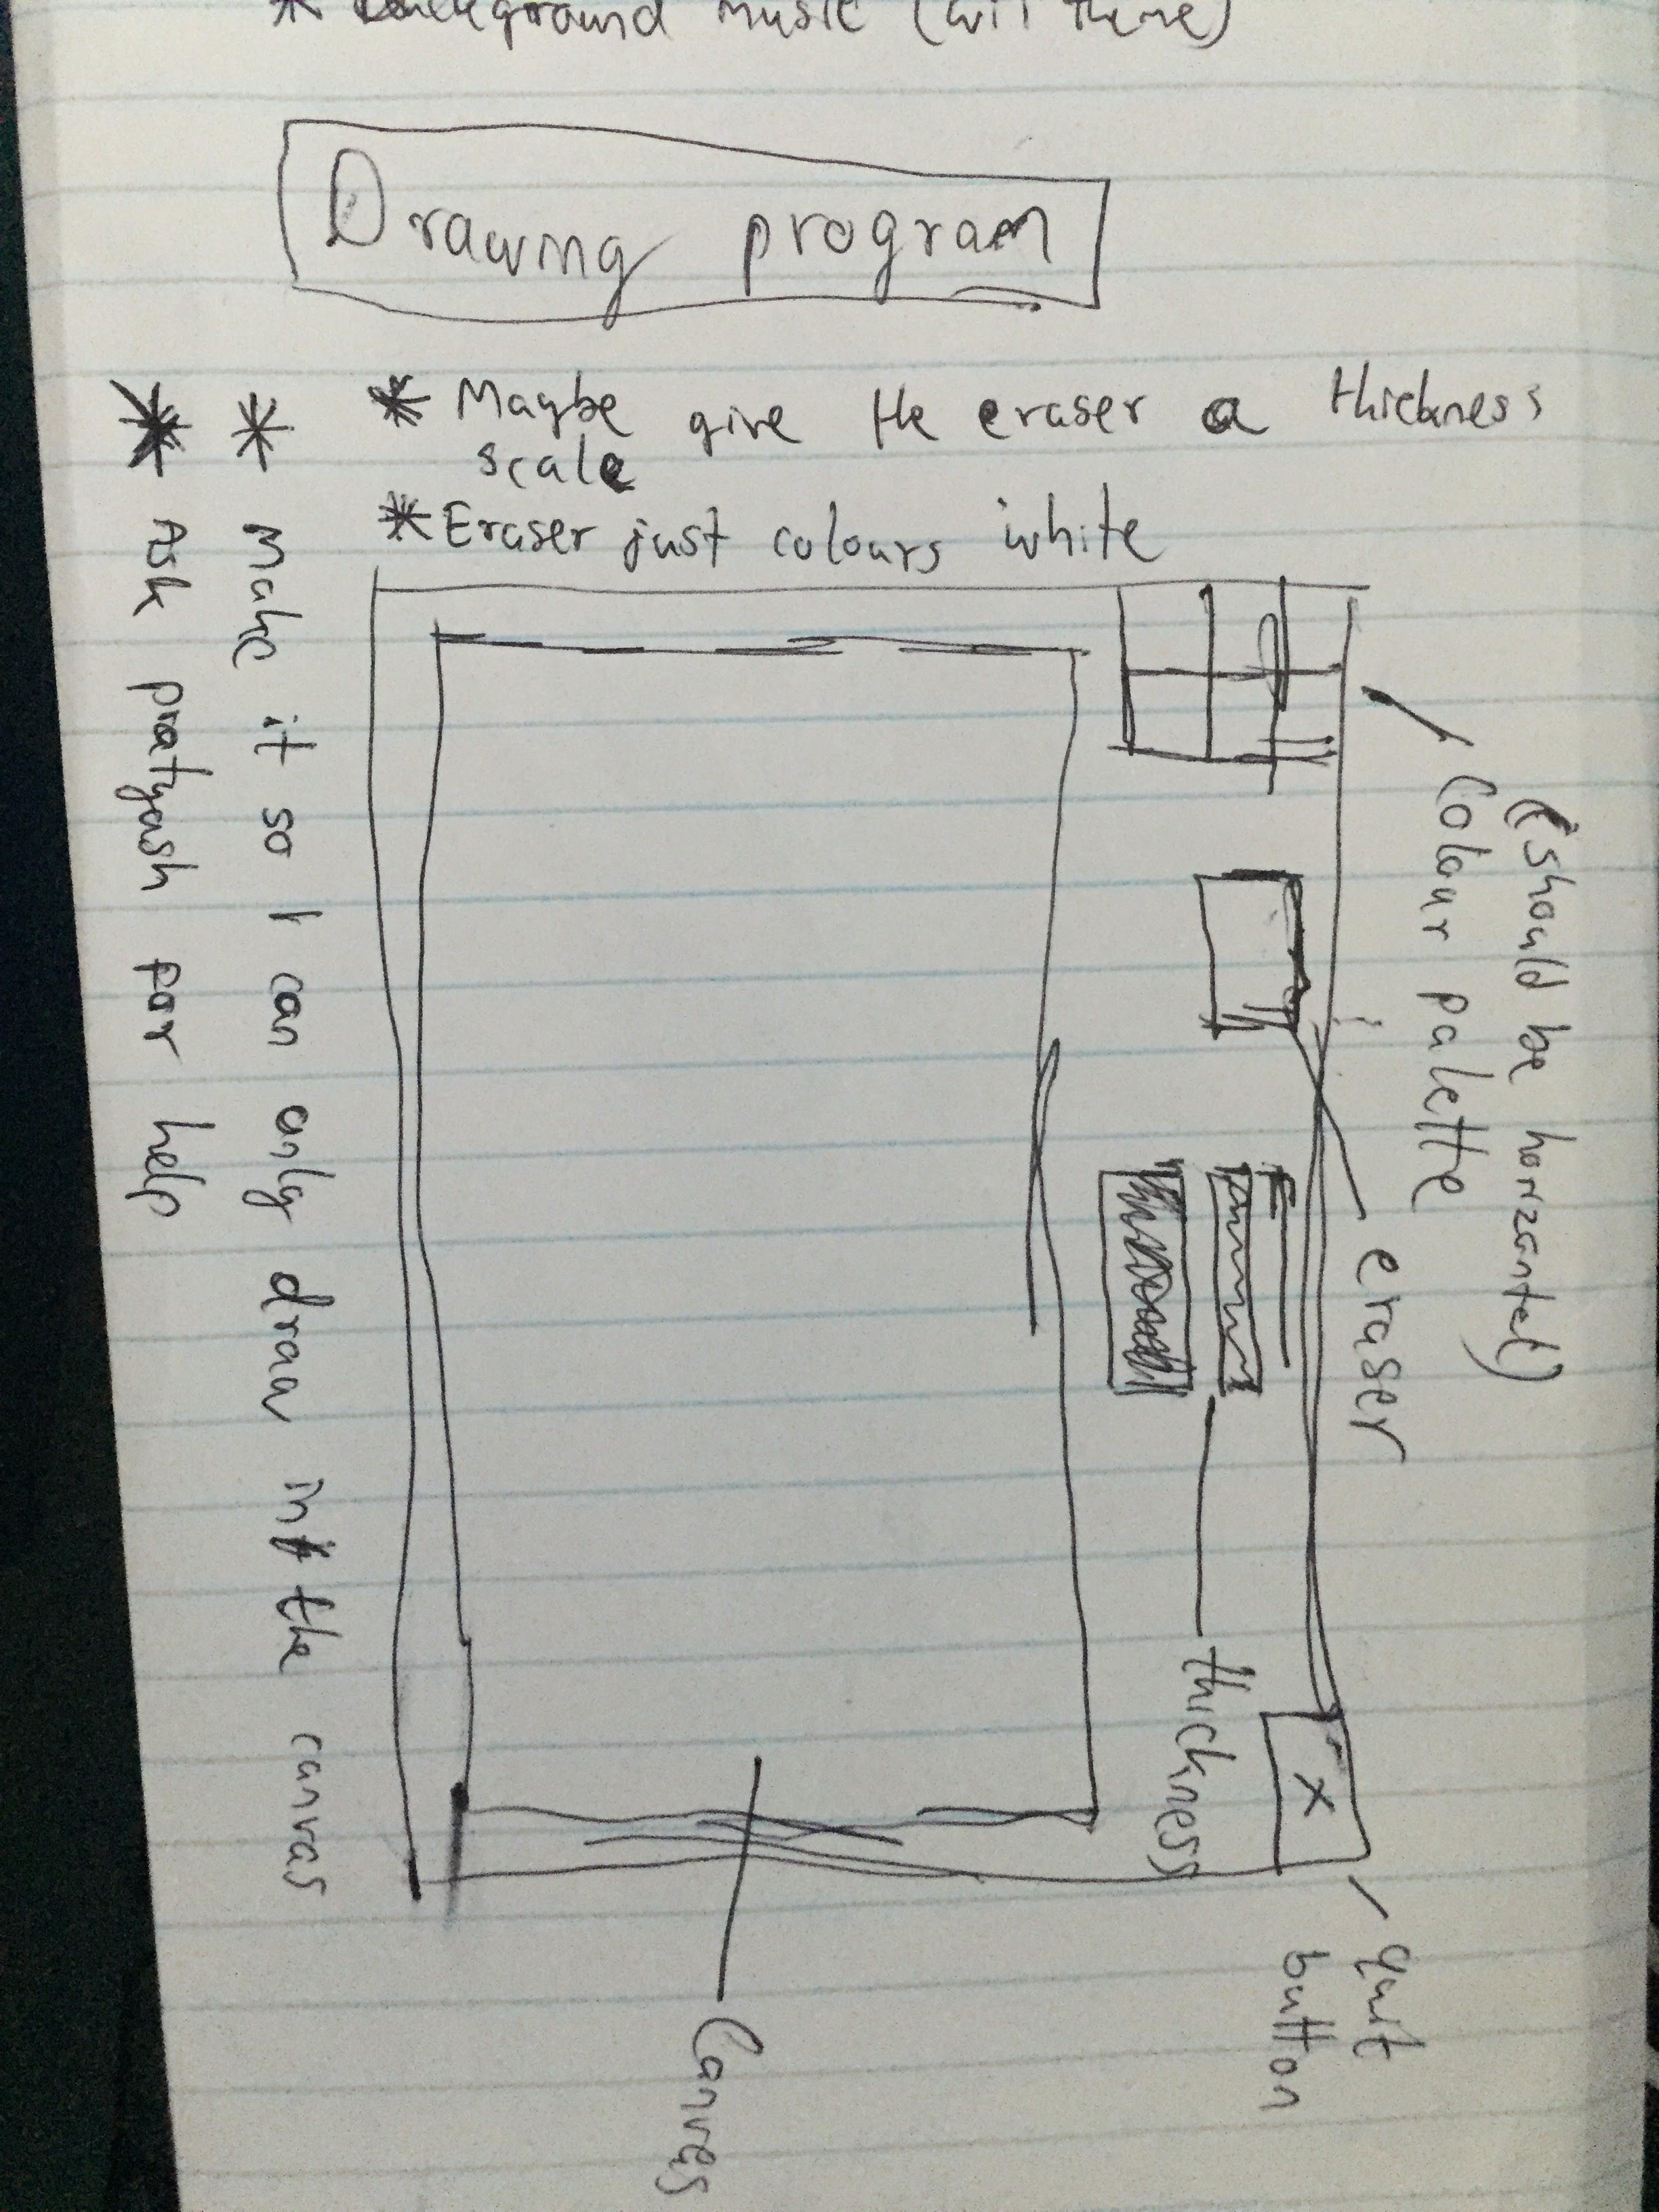 * Background music (with theme)
Drawing program
* Maybe give the eraser a thickness
scale
* Eraser just colours white
(should be horizontal)
Colour palette
eraser
thickness
X
quit
button
Canvas
* Make it so I can only draw in the canvas
* Ask pratyush for help